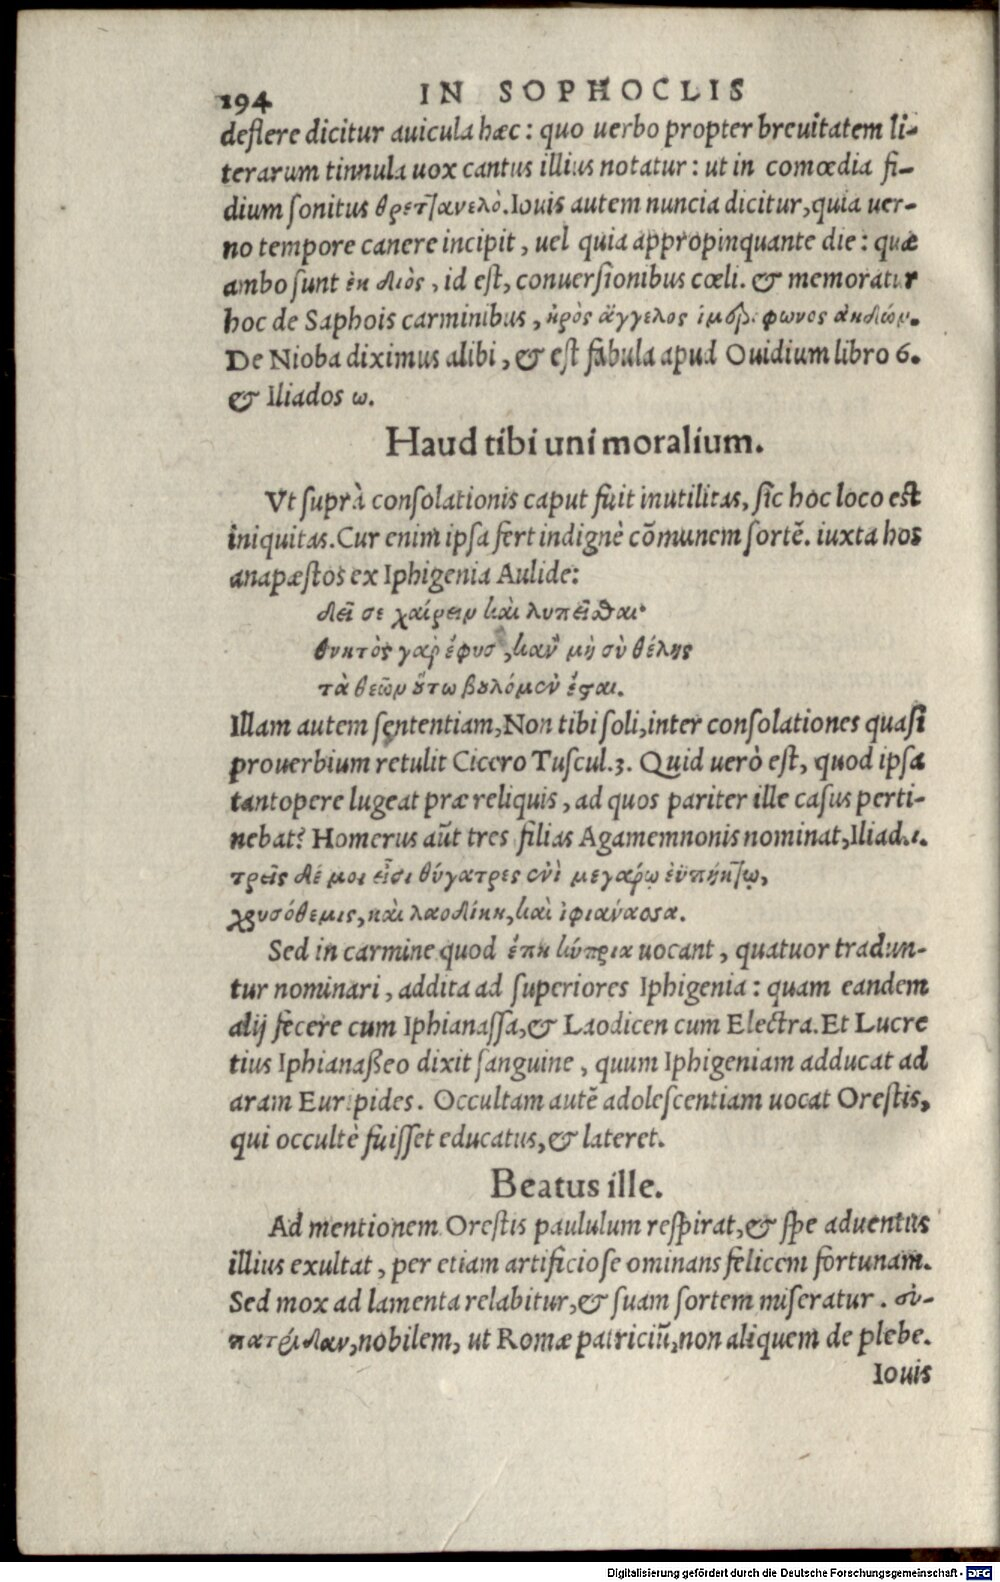 194 IN SOPHOCLIS
deflere dicitur auicula hæc: quo uerbo propter breuitatem li-
terarum tinnula uox cantus illius notatur: ut in comœdia fi-
dium sonitus θρετ]ανελὸ. Iouis autem nuncia dicitur, quia uer-
no tempore canere incipit, uel quia appropinquante die: quæ
ambo sunt ἐκ διὸς, id est, conuersionibus cœli. & memoratur
hoc de Saphois carminibus, ἠρὸς ἄγγελος ἱμερόφωνος ἀηδών.
De Nioba diximus alibi, & est fabula apud Ouidium libro 6.
& Iliados ω.
Haud tibi uni moralium.
Vt suprà consolationis caput fuit inutilitas, sic hoc loco est
iniquitas. Cur enim ipsa fert indignè cōmunem sortē. iuxta hos
anapæstos ex Iphigenia Aulide:
δεῖ σε χαίρειν καὶ λυπεῖσθαι·
θνητὸς γὰρ ἔφυσ, κἂν μὴ σὺ θέλῃς
τὰ θεῶν οὕτω βουλόμεν' ἔσται.
Illam autem sententiam, Non tibi soli, inter consolationes quasi
prouerbium retulit Cicero Tuscul. 3. Quid uerò est, quod ipsa
tantopere lugeat præ reliquis, ad quos pariter ille casus perti-
nebat? Homerus aūt tres filias Agamemnonis nominat, Iliad. ι.
τρεῖς δέ μοι εἰσι θύγατρες ἐνὶ μεγάρῳ ἐϋπήκτῳ,
χρυσόθεμις, καὶ λαοδίκη, καὶ ἰφιάνασσα.
Sed in carmine quod ἔπη κύπρια uocant, quatuor tradun-
tur nominari, addita ad superiores Iphigenia: quam eandem
alij fecere cum Iphianassa, & Laodicen cum Electra. Et Lucre
tius Iphianaßeo dixit sanguine, quum Iphigeniam adducat ad
aram Euripides. Occultam autē adolescentiam uocat Orestis,
qui occultè fuisset educatus, & lateret.
Beatus ille.
Ad mentionem Orestis paululum respirat, & spe aduentus
illius exultat, per etiam artificiose ominans felicem fortunam.
Sed mox ad lamenta relabitur, & suam sortem miseratur. εὐ-
πατρίδαν, nobilem, ut Romæ patriciū, non aliquem de plebe.
Iouis
Digitalisierung gefördert durch die Deutsche Forschungsgemeinschaft - DFG